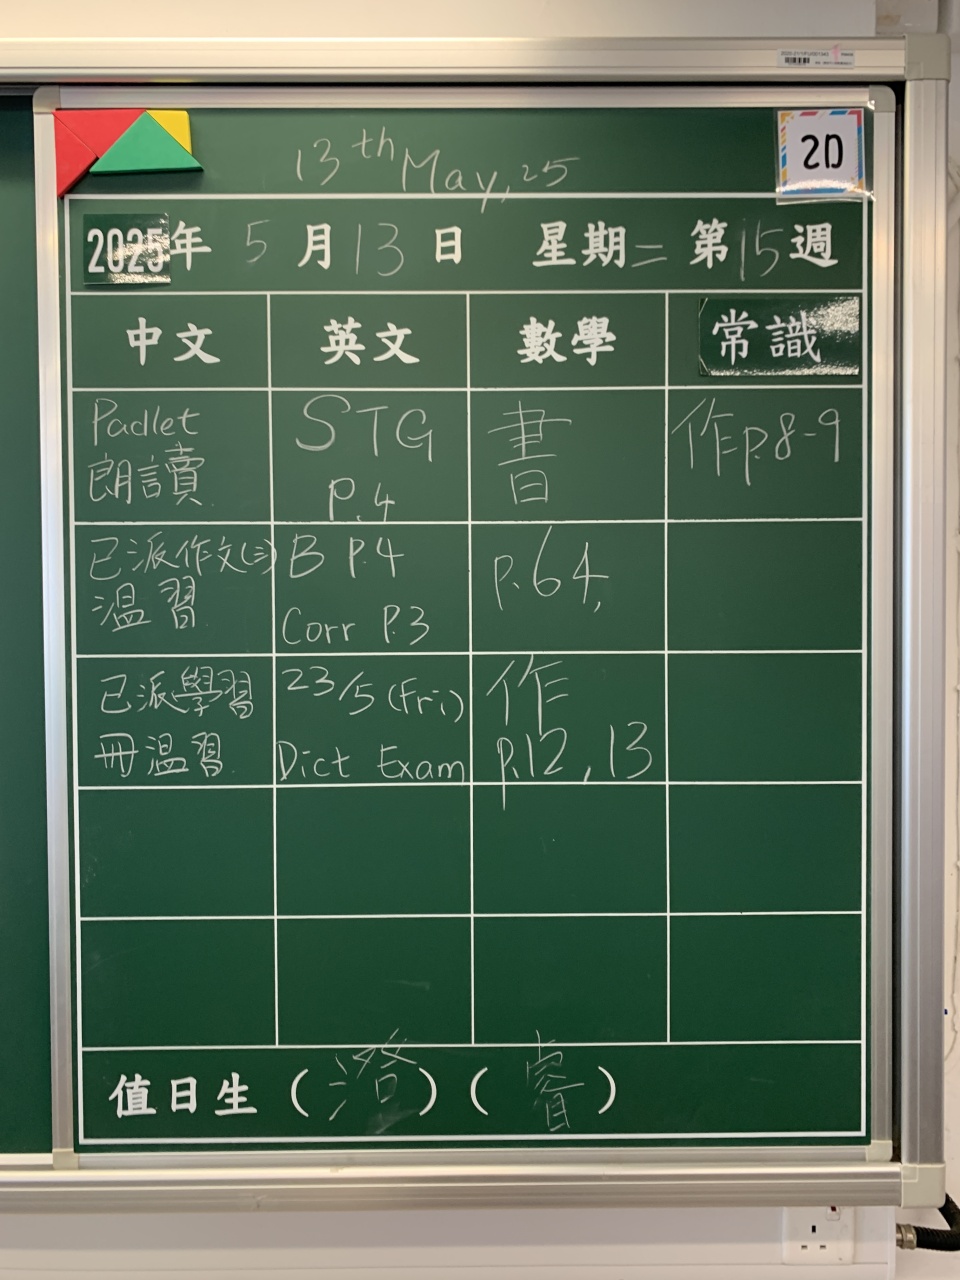 13th May, 25
2D
2025年 5 月 13 日 星期二 第 15 週
中文 英文 數學 常識
Padlet
朗讀
STG
P.4
書
作p.8-9
已派作文(三)
溫習
B P.4
Corr P.3
p.64,
已派學習
冊溫習
23/5 (Fri)
Dict Exam
作
p.12, 13
值日生 ( 澄 ) ( 睿 )